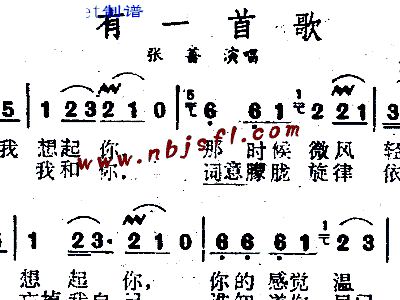 et制谱
有一首歌
张蔷演唱
5 | 1 2 3 2 1 0 | 6 6 1 2 2 1 |
我 想起 你 那 时候 微风 轻
我和 你. 词意朦胧 旋律 依
www.nbjsfl.com
5 | 1 2 3· 2 1 0 | 6 6 6 1 2
想 起 你, 你的 感觉 温